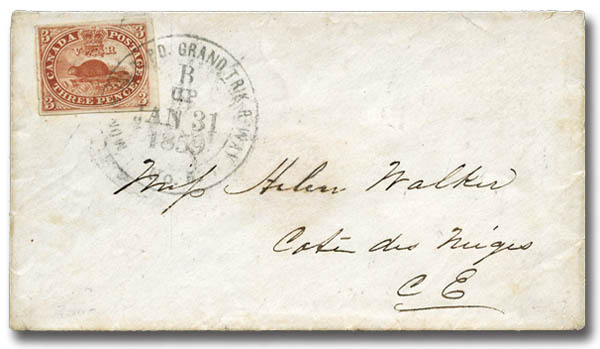 3 CANADA POSTAGE 3
V R
3 THREE PENCE 3
MON PD. GRAND TRK. R.WAY
B
UP
JAN 31
1859
Miss Helen Walker
Coté des Nieges
C E